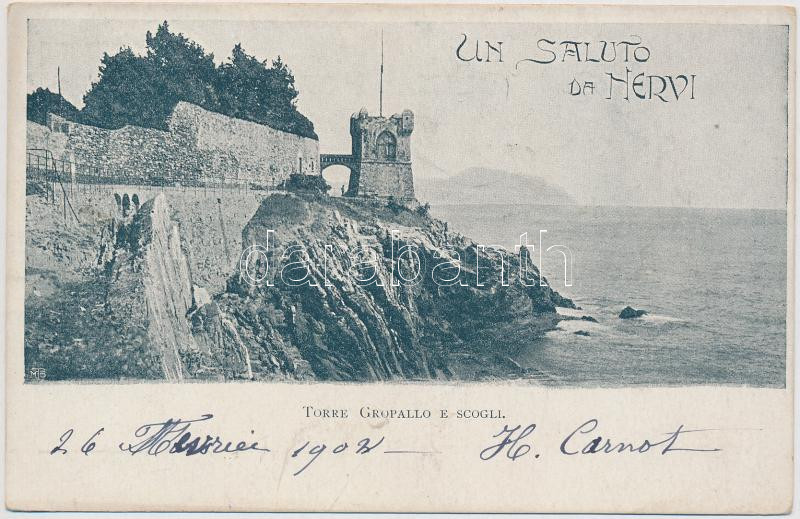 UN SALUTO
DA NERVI
darabanth
TORRE GROPALLO E SCOGLI.
26 1902 — H. Carnot